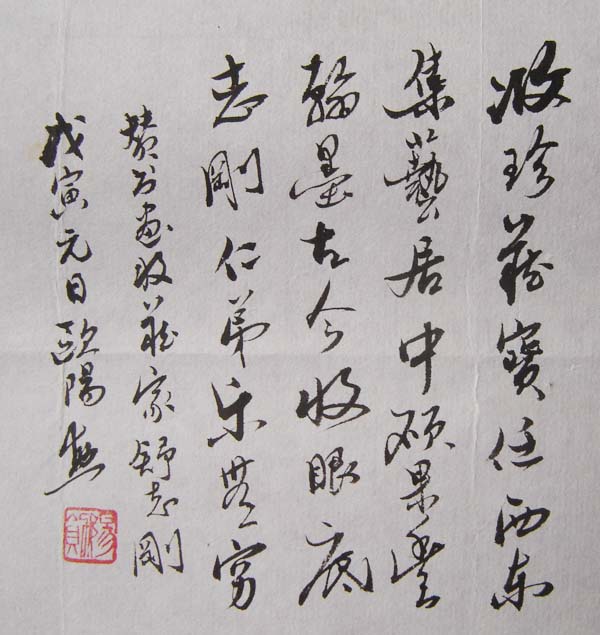 收珍藏寶任西東
集藝居中碩果豐
翰墨古今收眼底
志剛仁弟乐無穷
贊书画收藏家舒志剛
戊寅元日歐陽